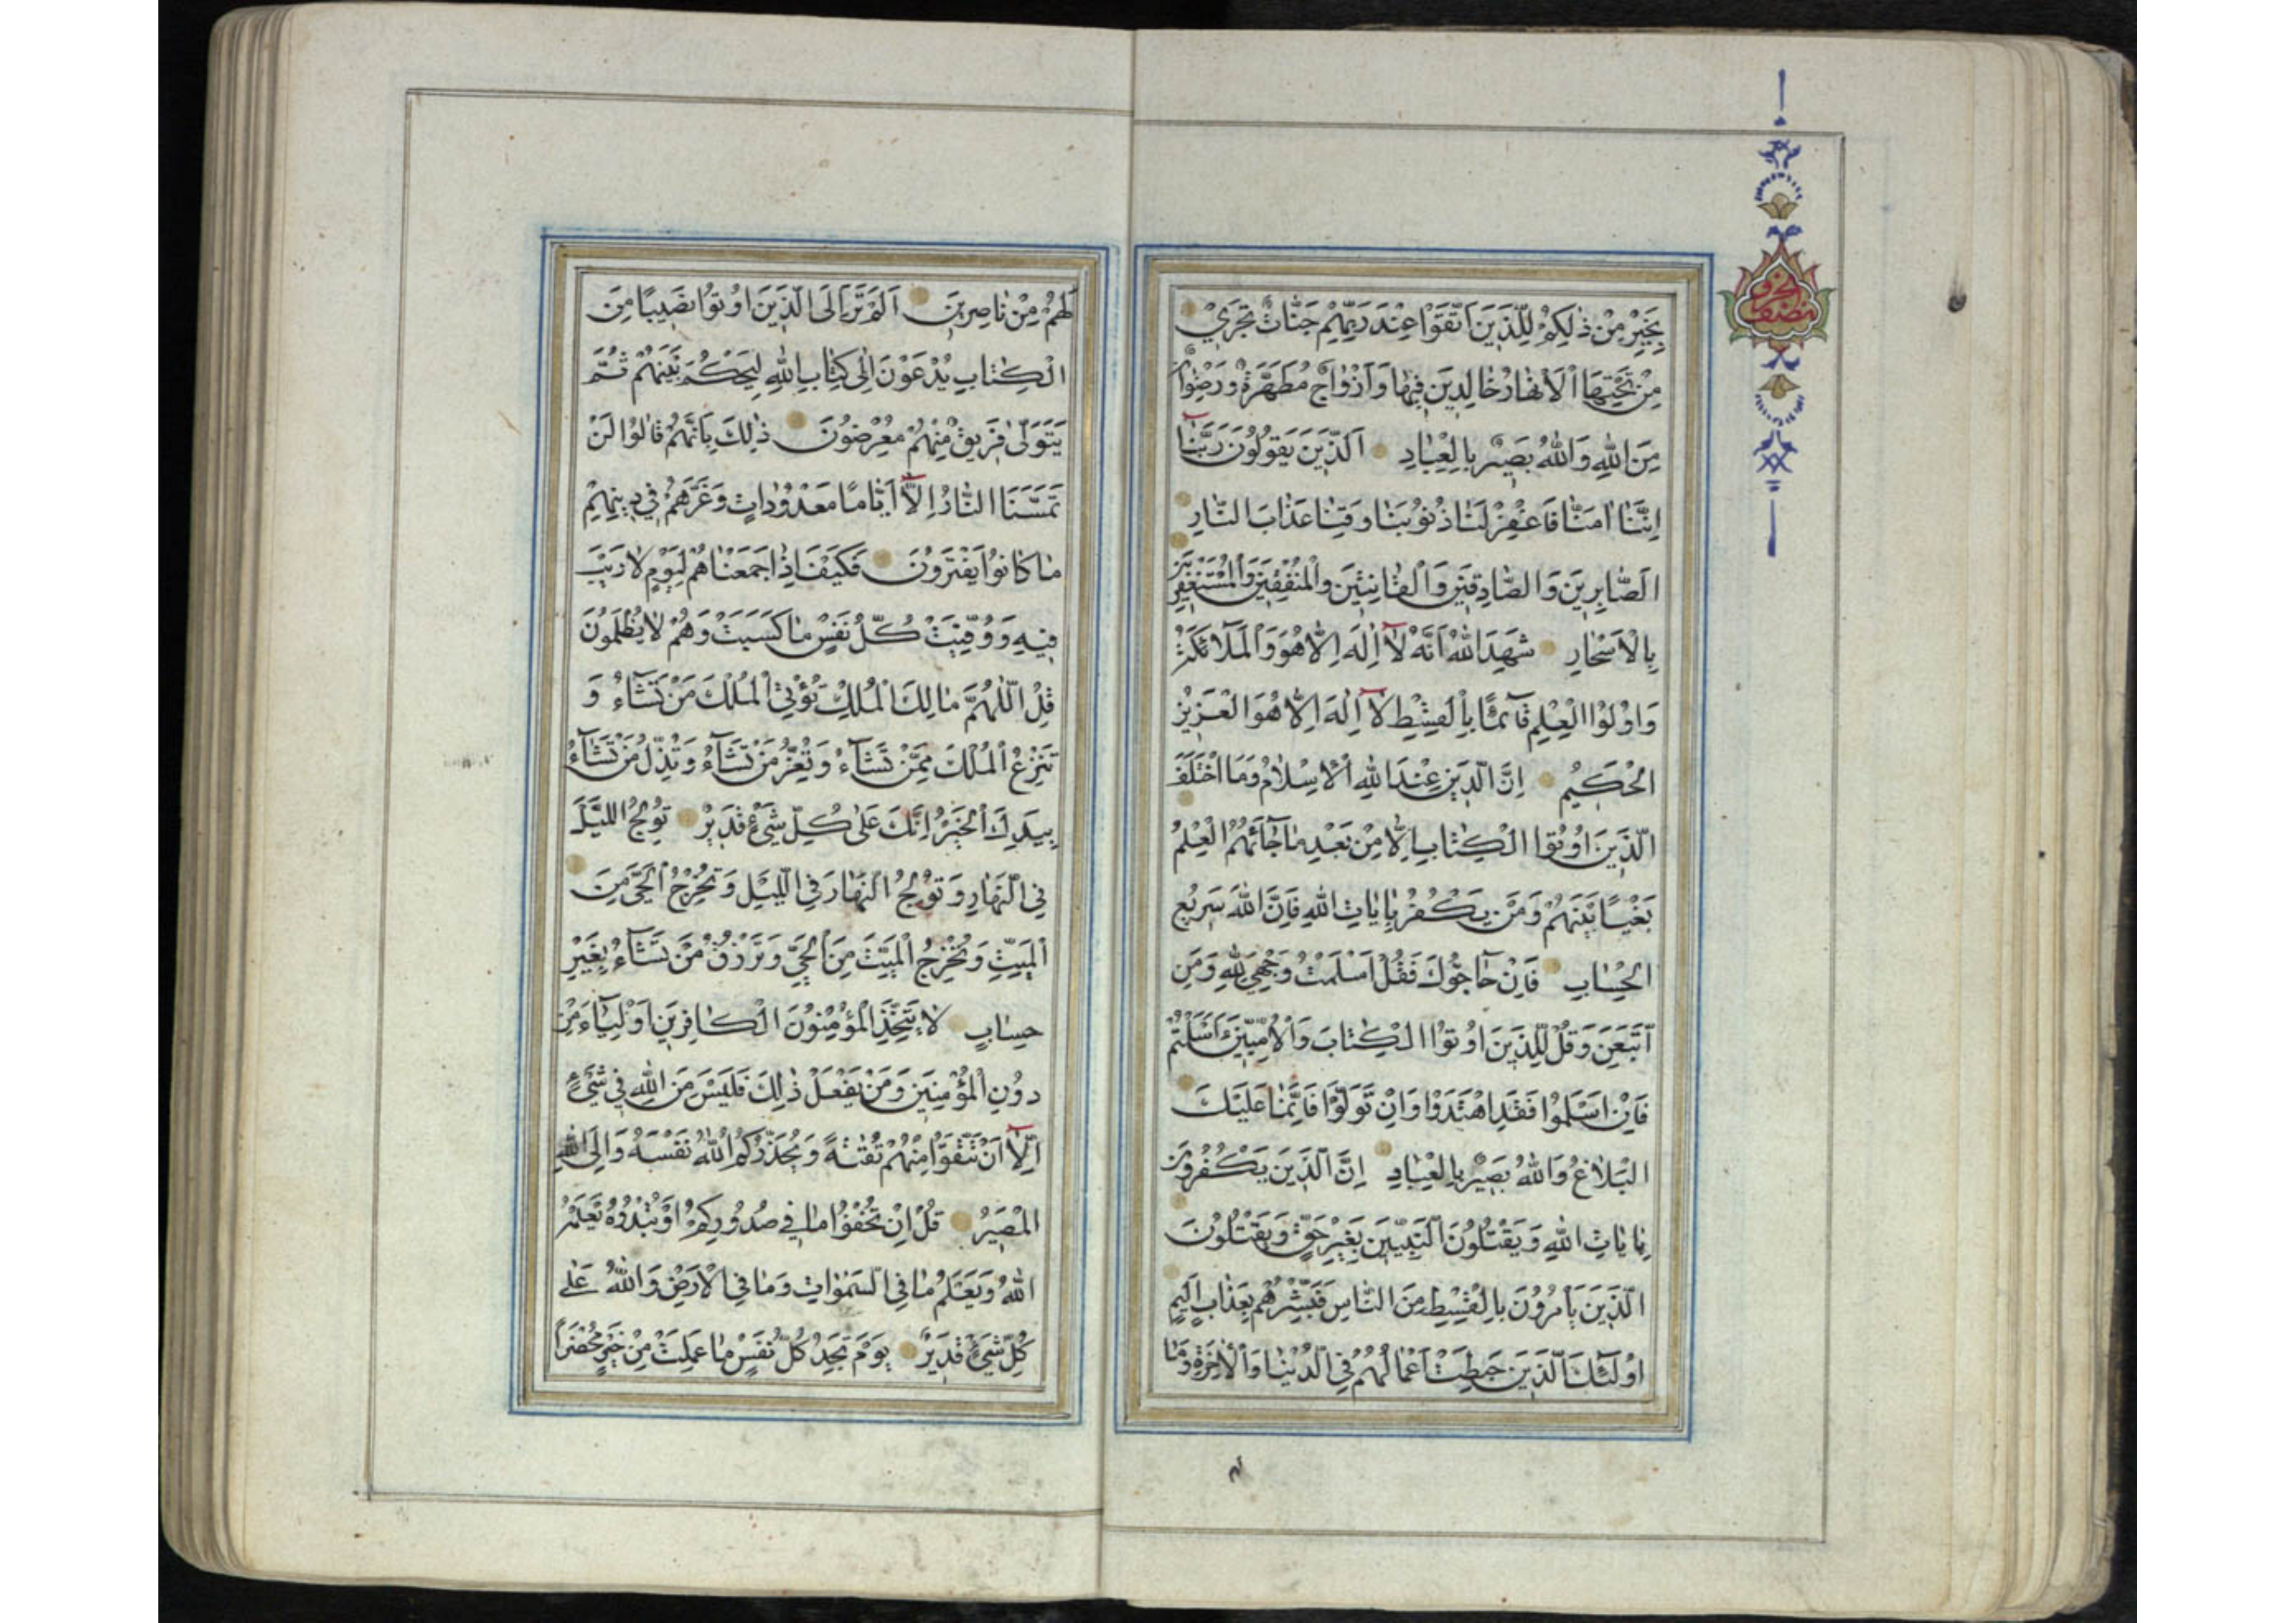 بِخَيْرٍ مِنْ ذٰلِكُمْ لِلَّذِينَ اتَّقَوْا عِنْدَ رَبِّهِمْ جَنَّاتٌ تَجْرِي
مِنْ تَحْتِهَا الْأَنْهَارُ خَالِدِينَ فِيهَا وَأَزْوَاجٌ مُطَهَّرَةٌ وَرِضْوَانٌ
مِنَ اللّٰهِ وَاللّٰهُ بَصِيرٌ بِالْعِبَادِ الَّذِينَ يَقُولُونَ رَبَّنَا
إِنَّنَا اٰمَنَّا فَاغْفِرْ لَنَا ذُنُوبَنَا وَقِنَا عَذَابَ النَّارِ
الصَّابِرِينَ وَالصَّادِقِينَ وَالْقَانِتِينَ وَالْمُنْفِقِينَ وَالْمُسْتَغْفِرِينَ
بِالْأَسْحَارِ شَهِدَ اللّٰهُ أَنَّهُ لَا إِلٰهَ إِلَّا هُوَ وَالْمَلَائِكَةُ
وَاُولُوا الْعِلْمِ قَآئِمًا بِالْقِسْطِ لَا إِلٰهَ إِلَّا هُوَ الْعَزِيزُ
الْحَكِيمُ إِنَّ الدِّينَ عِنْدَ اللّٰهِ الْإِسْلَامُ وَمَا اخْتَلَفَ
الَّذِينَ اُوتُوا الْكِتَابَ إِلَّا مِنْ بَعْدِ مَا جَآئَهُمُ الْعِلْمُ
بَغْيًا بَيْنَهُمْ وَمَنْ يَكْفُرْ بِاٰيَاتِ اللّٰهِ فَإِنَّ اللّٰهَ سَرِيعُ
الْحِسَابِ فَإِنْ حَآجُّوكَ فَقُلْ أَسْلَمْتُ وَجْهِيَ لِلّٰهِ وَمَنِ
اتَّبَعَنِ وَقُلْ لِلَّذِينَ اُوتُوا الْكِتَابَ وَالْاُمِّيِّينَ ءَأَسْلَمْتُمْ
فَإِنْ أَسْلَمُوا فَقَدِ اهْتَدَوْا وَإِنْ تَوَلَّوْا فَإِنَّمَا عَلَيْكَ
الْبَلَاغُ وَاللّٰهُ بَصِيرٌ بِالْعِبَادِ إِنَّ الَّذِينَ يَكْفُرُونَ
بِاٰيَاتِ اللّٰهِ وَيَقْتُلُونَ النَّبِيِّينَ بِغَيْرِ حَقٍّ وَيَقْتُلُونَ
الَّذِينَ يَأْمُرُونَ بِالْقِسْطِ مِنَ النَّاسِ فَبَشِّرْهُمْ بِعَذَابٍ أَلِيمٍ
اُولٰئِكَ الَّذِينَ حَبِطَتْ أَعْمَالُهُمْ فِي الدُّنْيَا وَالْاٰخِرَةِ وَمَا
لَهُمْ مِنْ نَاصِرِينَ أَلَمْ تَرَ إِلَى الَّذِينَ اُوتُوا نَصِيبًا مِنَ
الْكِتَابِ يُدْعَوْنَ إِلَى كِتَابِ اللّٰهِ لِيَحْكُمَ بَيْنَهُمْ ثُمَّ
يَتَوَلّٰى فَرِيقٌ مِنْهُمْ مُعْرِضُونَ ذٰلِكَ بِأَنَّهُمْ قَالُوا لَنْ
تَمَسَّنَا النَّارُ إِلَّا أَيَّامًا مَعْدُودَاتٍ وَغَرَّهُمْ فِي دِينِهِمْ
مَا كَانُوا يَفْتَرُونَ فَكَيْفَ إِذَا جَمَعْنَاهُمْ لِيَوْمٍ لَا رَيْبَ
فِيهِ وَوُفِّيَتْ كُلُّ نَفْسٍ مَا كَسَبَتْ وَهُمْ لَا يُظْلَمُونَ
قُلِ اللّٰهُمَّ مَالِكَ الْمُلْكِ تُؤْتِي الْمُلْكَ مَنْ تَشَآءُ وَ
تَنْزِعُ الْمُلْكَ مِمَّنْ تَشَآءُ وَتُعِزُّ مَنْ تَشَآءُ وَتُذِلُّ مَنْ تَشَآءُ
بِيَدِكَ الْخَيْرُ إِنَّكَ عَلٰى كُلِّ شَيْءٍ قَدِيرٌ تُولِجُ اللَّيْلَ
فِي النَّهَارِ وَتُولِجُ النَّهَارَ فِي اللَّيْلِ وَتُخْرِجُ الْحَيَّ مِنَ
الْمَيِّتِ وَتُخْرِجُ الْمَيِّتَ مِنَ الْحَيِّ وَتَرْزُقُ مَنْ تَشَآءُ بِغَيْرِ
حِسَابٍ لَا يَتَّخِذِ الْمُؤْمِنُونَ الْكَافِرِينَ أَوْلِيَآءَ مِنْ
دُونِ الْمُؤْمِنِينَ وَمَنْ يَفْعَلْ ذٰلِكَ فَلَيْسَ مِنَ اللّٰهِ فِي شَيْءٍ
إِلَّا أَنْ تَتَّقُوا مِنْهُمْ تُقٰيةً وَيُحَذِّرُكُمُ اللّٰهُ نَفْسَهُ وَإِلَى اللّٰهِ
الْمَصِيرُ قُلْ إِنْ تُخْفُوا مَا فِي صُدُورِكُمْ أَوْ تُبْدُوهُ يَعْلَمْهُ
اللّٰهُ وَيَعْلَمُ مَا فِي السَّمٰوَاتِ وَمَا فِي الْأَرْضِ وَاللّٰهُ عَلٰى
كُلِّ شَيْءٍ قَدِيرٌ يَوْمَ تَجِدُ كُلُّ نَفْسٍ مَا عَمِلَتْ مِنْ خَيْرٍ مُحْضَرًا